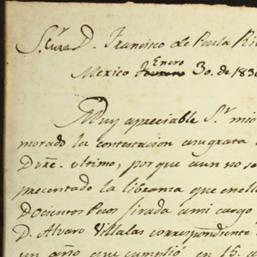 S.r Cura D. Francisco de Paula
Mexico Enero 30. de 183
Muy apreciable S.r mio
morado la contestacion a su grata
Dize. ultimo, porque aun no se
precentado la licencia que en ella
Docientos Pesos girada a mi cargo
D. Alvaro Villalas correspondiente
un año que cumplió en 15. d